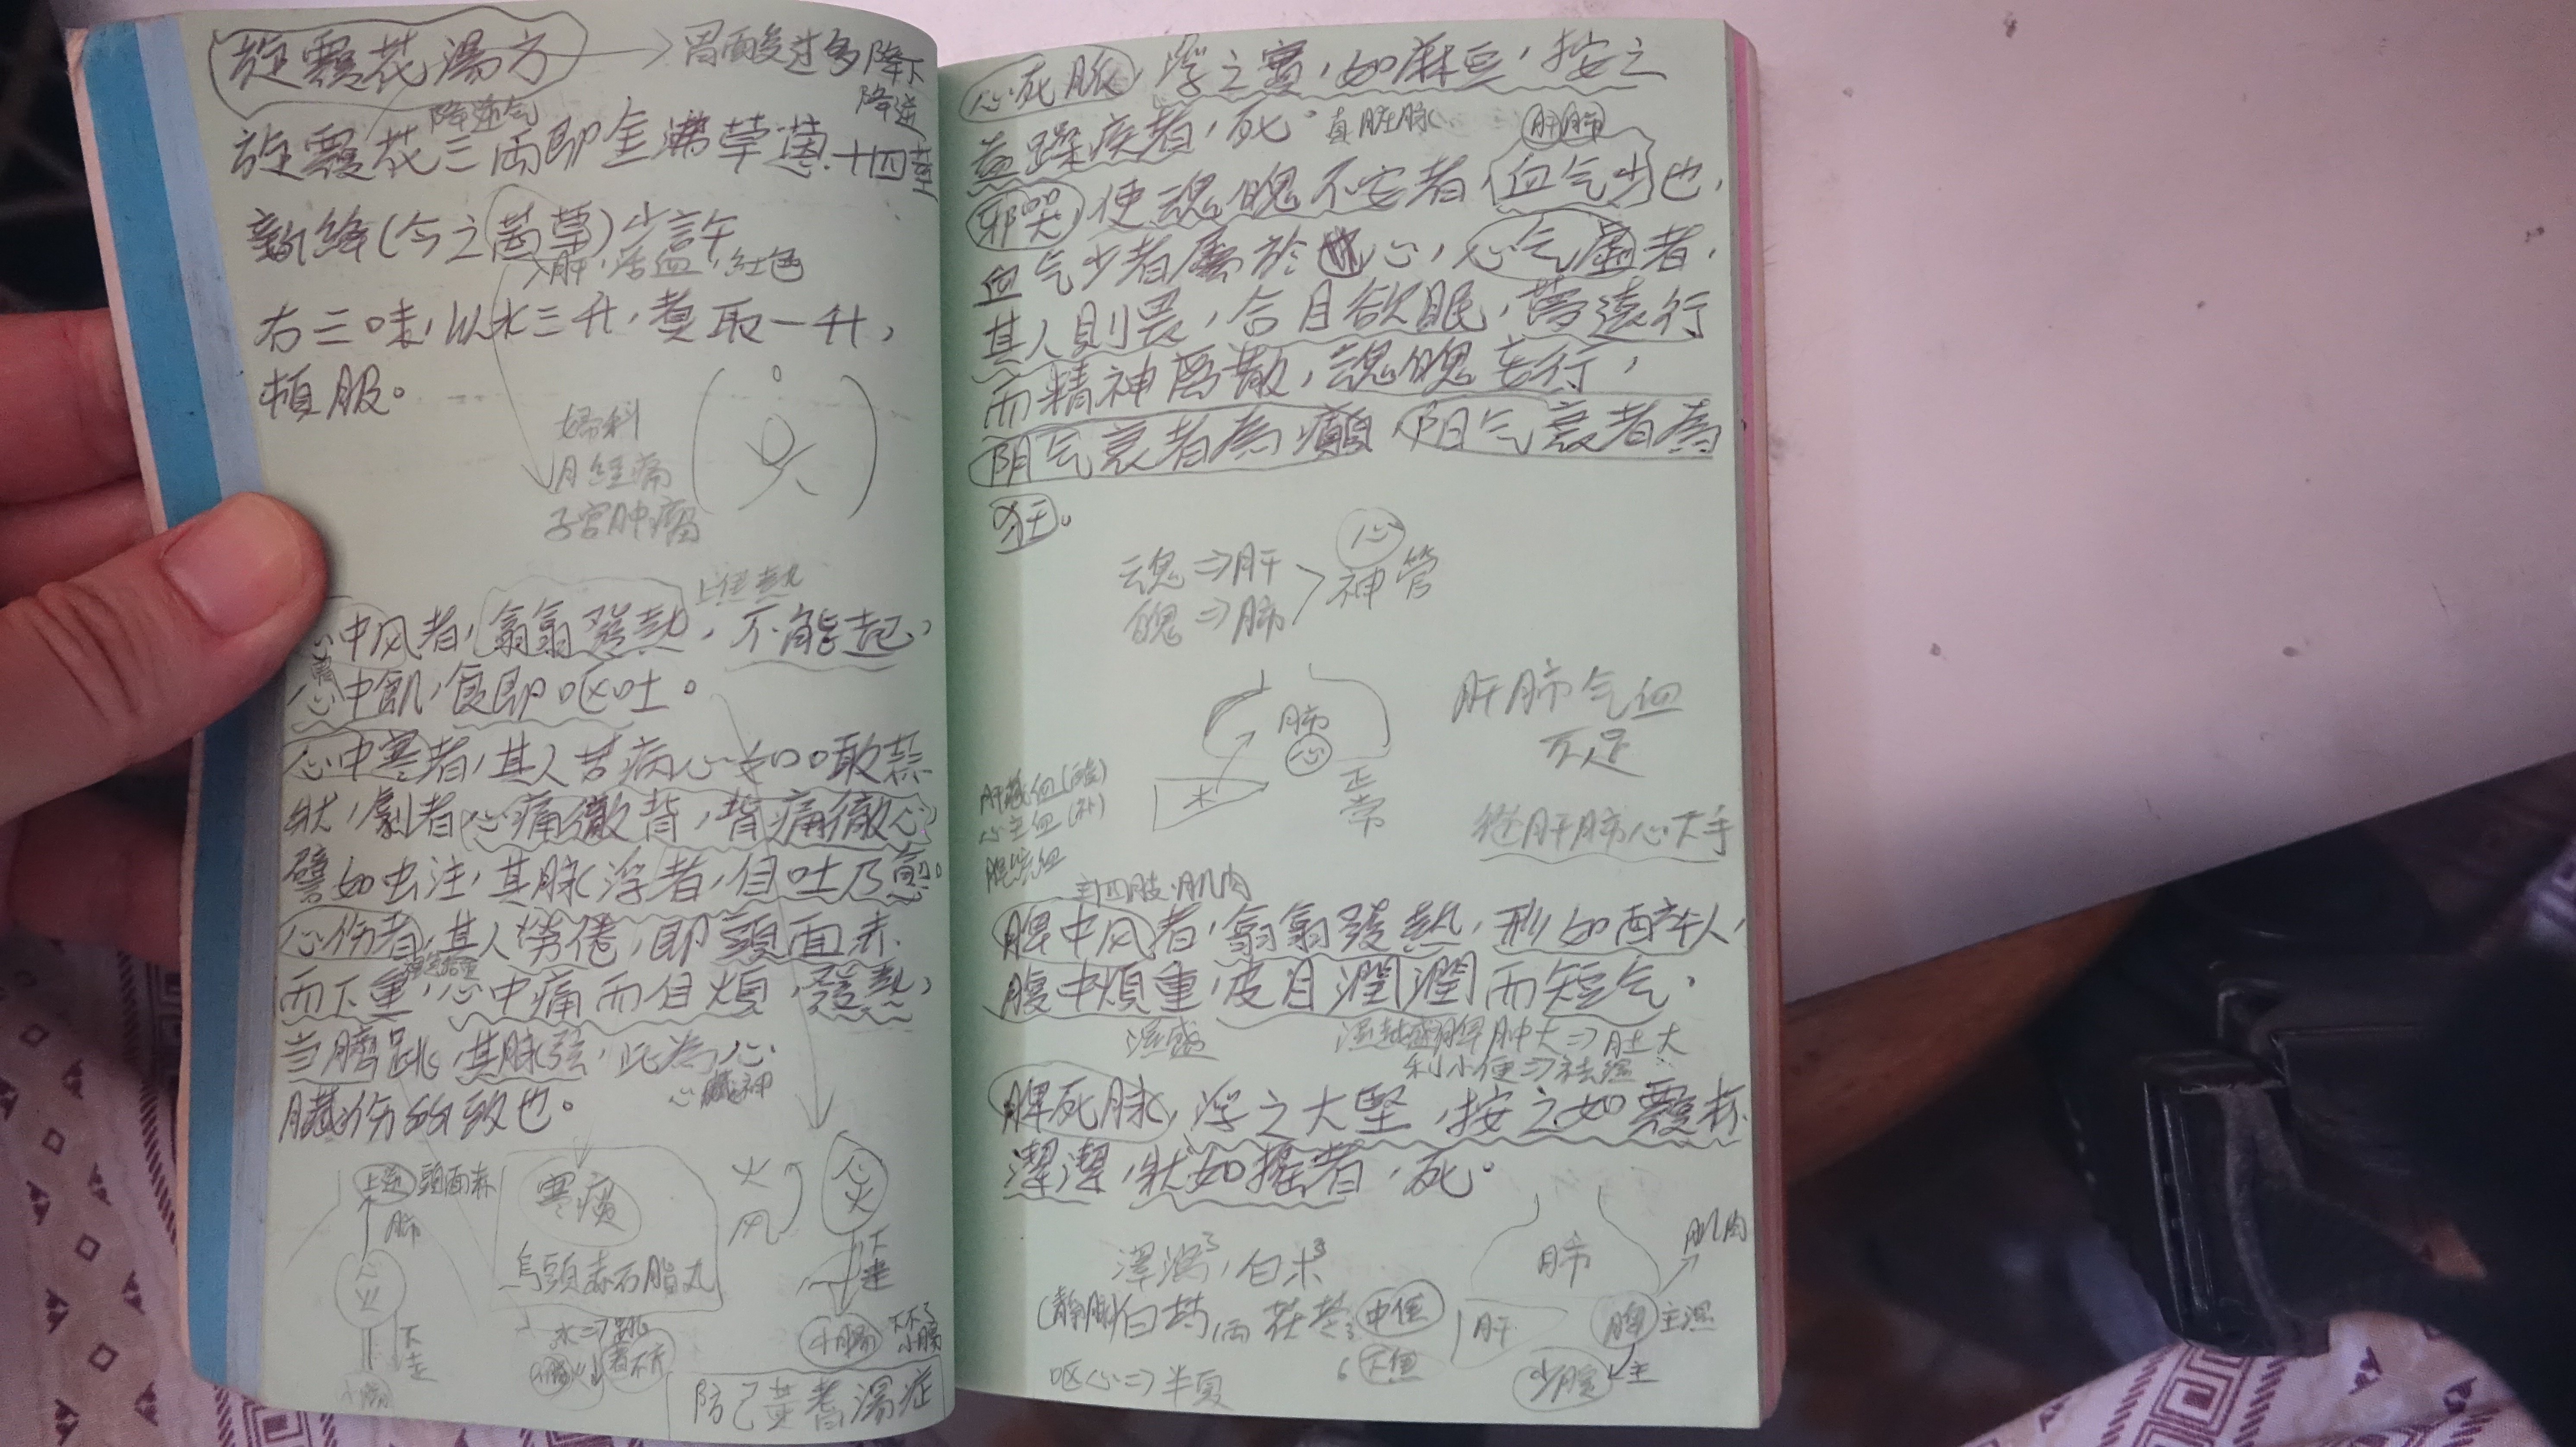 旋覆花湯方 → 胃酸过多降下
降逆
降逆气
旋覆花三兩即金沸草葱十四莖
新絳(今之茜草)少許
肝,活血,红色
右三味,以水三升,煮取一升,
頓服。
婦科
月經痛
子宫肿瘤
上焦热
心中风者,翕翕發熱,不能起,
心中飢,食即呕吐。
心中寒者,其人苦病心如噉蒜
狀,劇者心痛徹背,背痛徹心
譬如虫注,其脉浮者,自吐乃愈。
心伤者,其人勞倦,即頭面赤
而下重,心中痛而自煩,發熱,
当臍跳,其脉弦,此為心
臟伤所致也。
心藏神
上逆 頭面赤
肺
心火
下走
小腸
寒痰
烏頭赤石脂丸
水⇒跳
火
风
心火
下走
小腸
下不了小腸
防己黄耆湯症
心死脈,浮之實,如麻豆,按之
益躁疾者,死。真脏脉
肝肺
邪哭使魂魄不安者,血气少也,
血气少者屬於心,心气虛者,
其人則畏,合目欲眠,夢遠行
而精神离散,魂魄妄行,
阴气衰者為癲,阳气衰者為
狂。
魂⇒肝
魄⇒肺
心
神管
肺
心
正常
肝肺气血
不足
肝藏血(酸)
心主血(补)
脾统血
主四肢.肌肉
脾中风者,翕翕發熱,形如醉人,
腹中煩重,皮目潤潤而短气。
湿盛
利小便⇒祛湿
脾死脉,浮之大堅,按之如覆杯
潔潔,狀如搖者,死。
澤瀉3,白朮3
白芍 茯苓 中焦
下焦
呕心⇒半夏
肺
肌肉
肝
脾 主湿
主
少腹